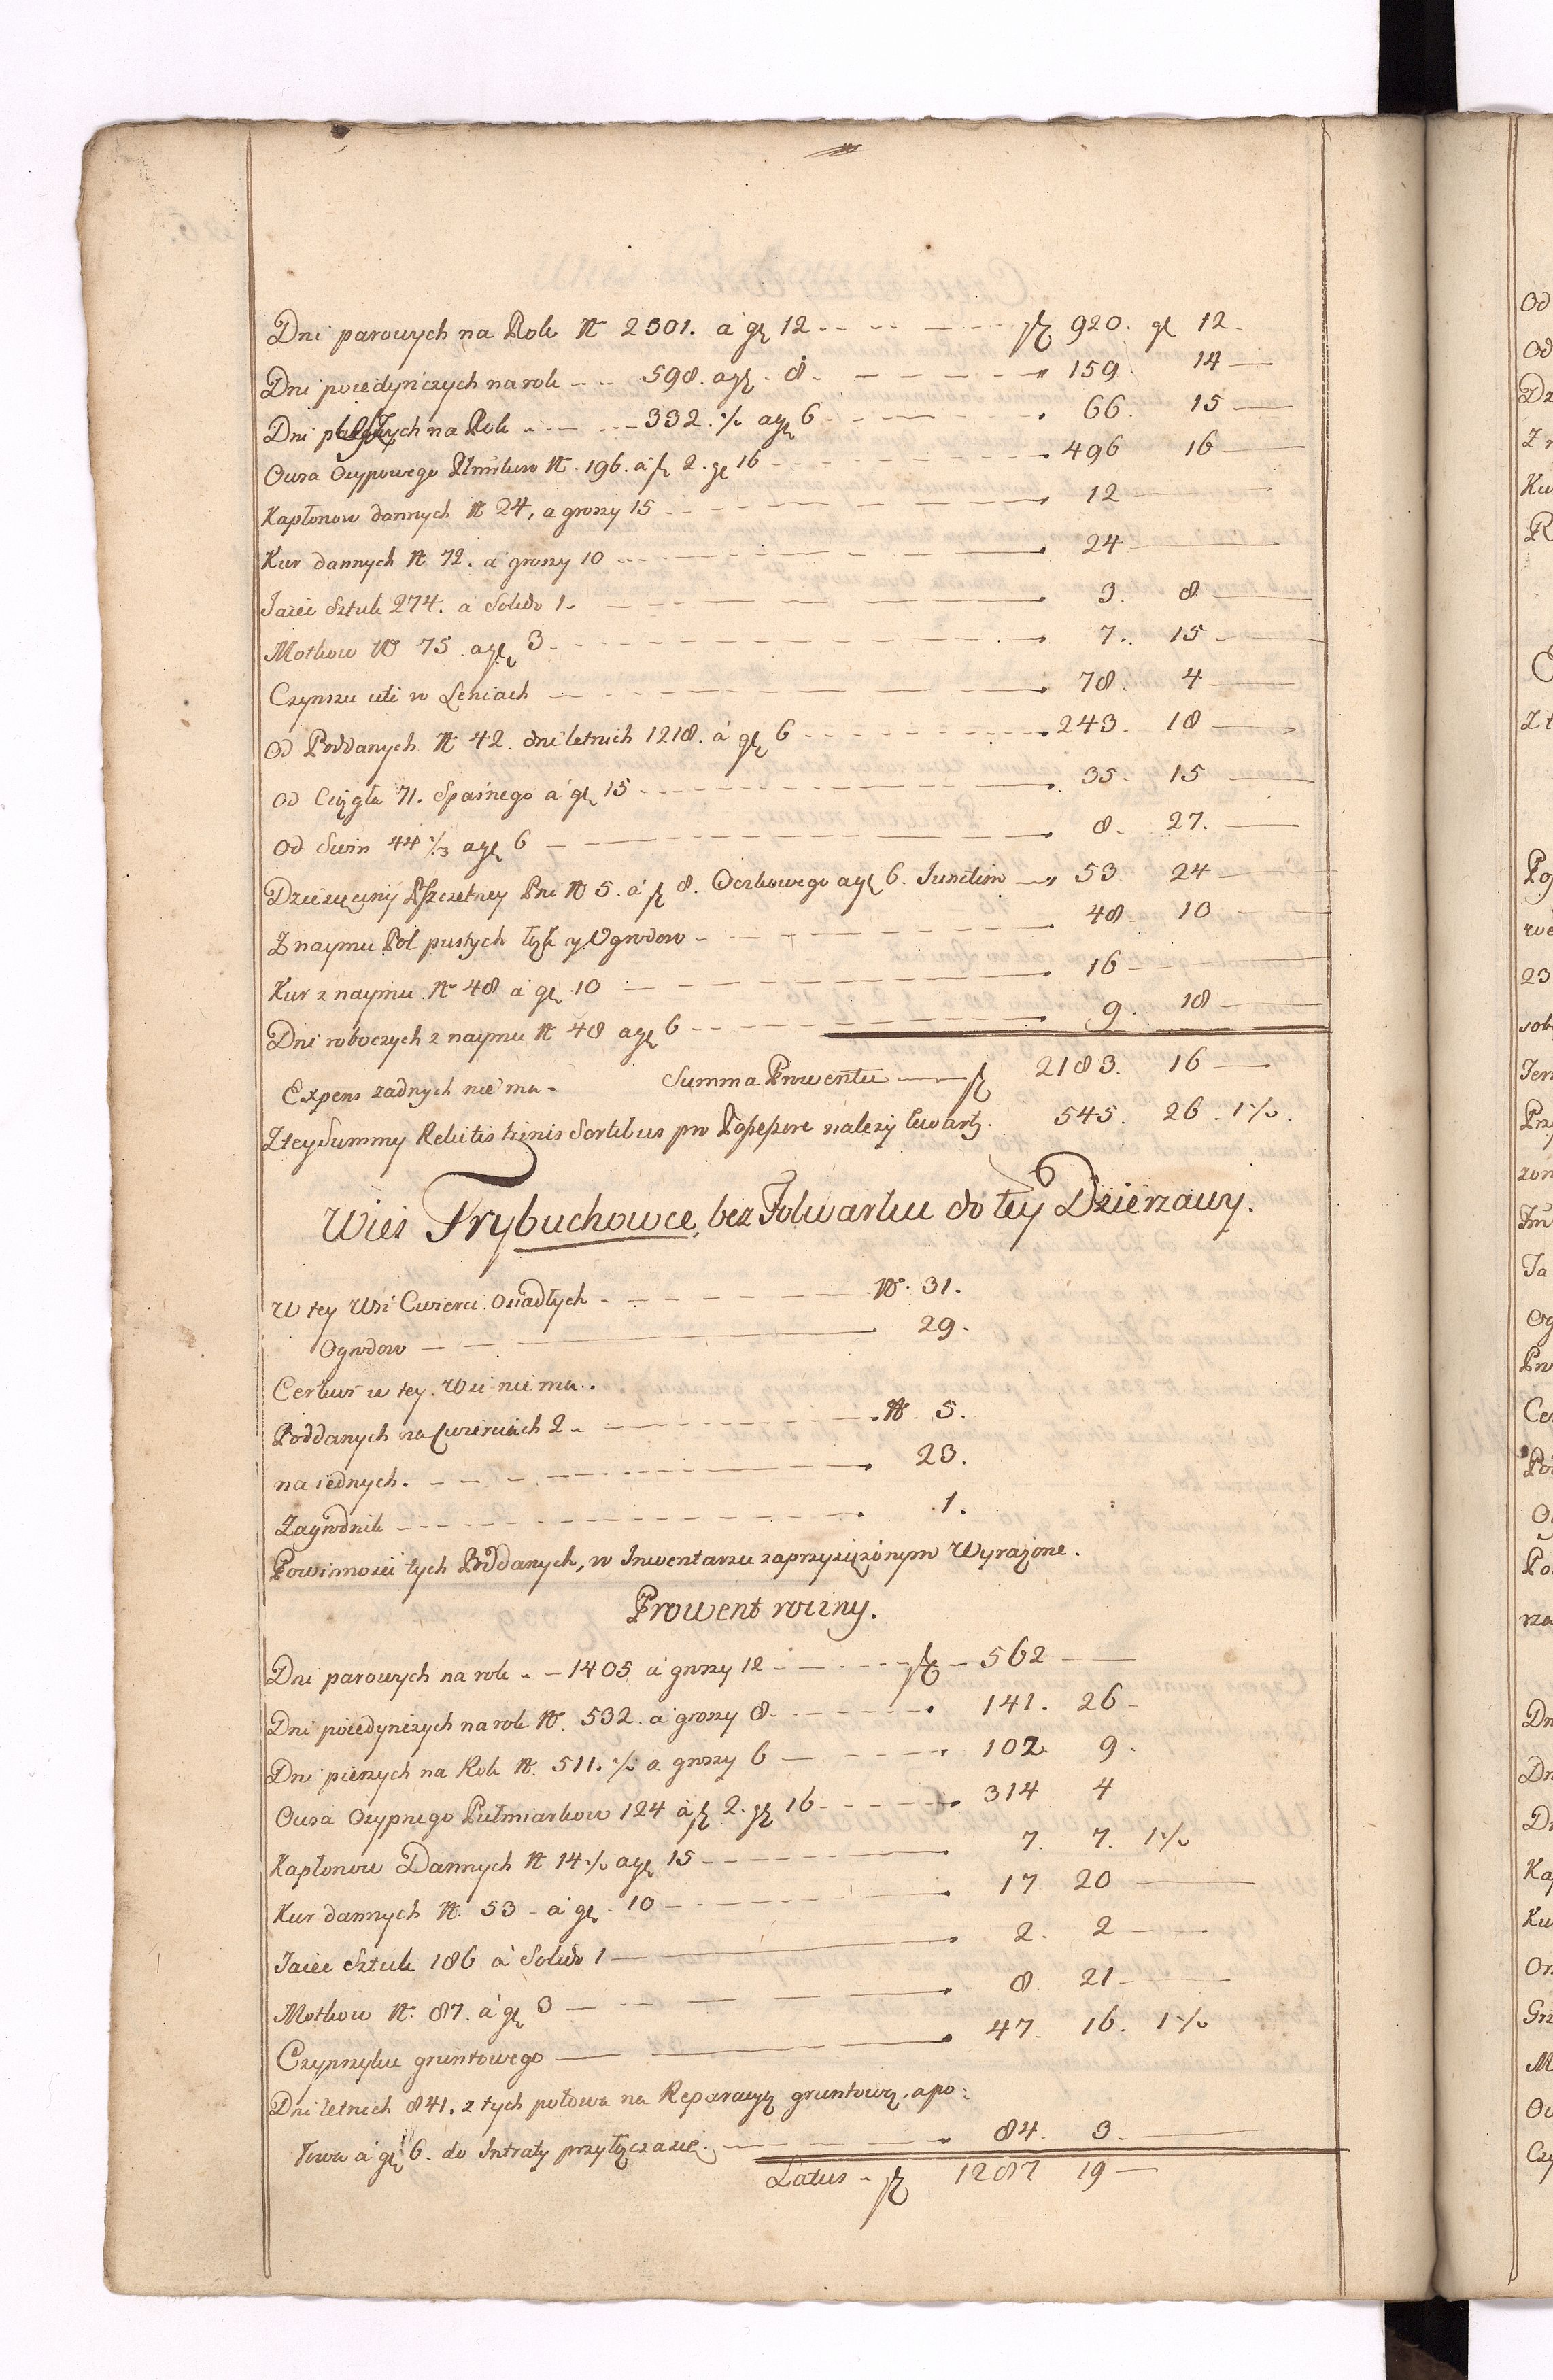 Dni parowych na Rok N 2301. á gł 12 fl 920. gł 12.
Dni poiedyńczych na rok 598. a gł. 8. 159. 14
Dni pieszych na Rok 332. ½ a gł 6 66. 15
Owsa Osypowego N. 196. á fl 2. gł 16 496 16
Kapłonow dannych N 24, a groszy 15 12
Kur dannych N 72. á groszy 10 24
Jaiec Sztuk 274. a Solido 1. 3. 8
Motkow N 75 a gł 3 7. 15
Czynszu uti w Leniach 78. 4
Od Poddanych N 42. dni letnich 1218. á gł 6 243. 18
Od Ciągła 71. Spaśnego á gł 15 35. 15
Od Swin 44 ½ a gł 6 8. 27.
Dziesięciny Pszczelney Pni N 5. á fl 8. Oczkowego a gł 6. Junctim 53 24
Z naymu Pol pustych łąk y Ogrodow 48. 10
Kur z naymu N 48 á gł 10 16
Dni roboczych z naymu N 48 a gł 6 9. 18
Expens zadnych nie ma. Summa Prowentu fl 2183. 16
Z tey Summy Relictis trinis Sortibus pro Possessore nalezy kwarty. 545. 26. 1½.
Wieś Trybuchowce, bez Folwarku do tey Dzierzawy.
W tey Wsi Cwierci Osiadłych N. 31.
Ogrodow 29.
Cerkwi w tey Wsi nie ma.
Poddanych na Cwierciach 2 N. 5.
na iednych. 23.
Zagrodnik 1.
Powinnosci tych Poddanych, w Inwentarzu zaprzysięzonym Wyrażone.
Prowent roczny.
Dni parowych na rok 1405 á groszy 12 fl 562
Dni poiedynczych na rok N. 532 á groszy 8 141. 26
Dni pieszych na Rok N. 511. ½ a groszy 6 102 9.
Owsa Osypnego Pułmiarkow 124 á fl 2. gł 16 314 4
Kapłonow Dannych N 14 ½ a gł 15 7. 7. 1½
Kur dannych N. 53 á gł. 10 17 20
Jaiec Sztuk 186 á Solido 1 2. 2
Motkow N. 87. á gł 3 8. 21
Czynszyku gruntowego 47. 16. 1½
Dni letnich 841. z tych połowa na Reparacyą gruntową, a po:
łowa á gł 6. do Intraty przyłącza się. 84. 3.
Latus fl 1287 19